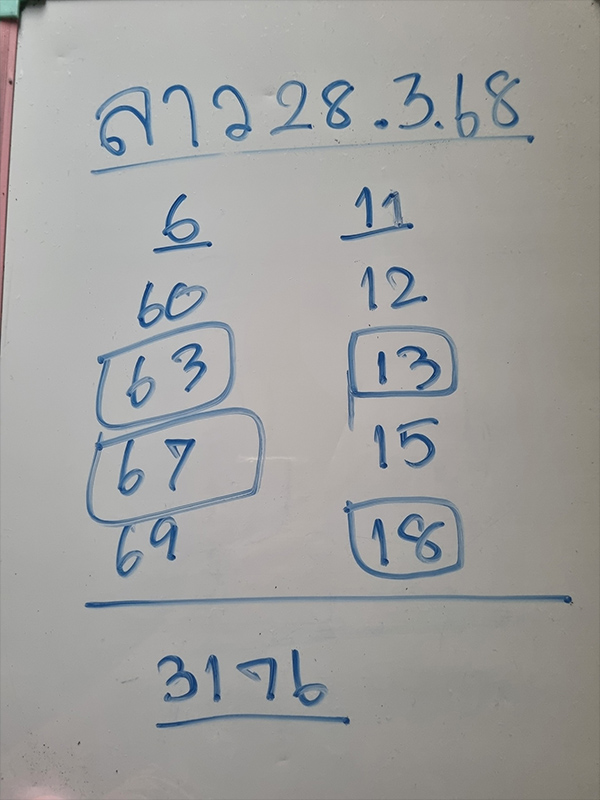 ลาว 28.3.68
6 11
60 12
63 13
67 15
69 18
3176